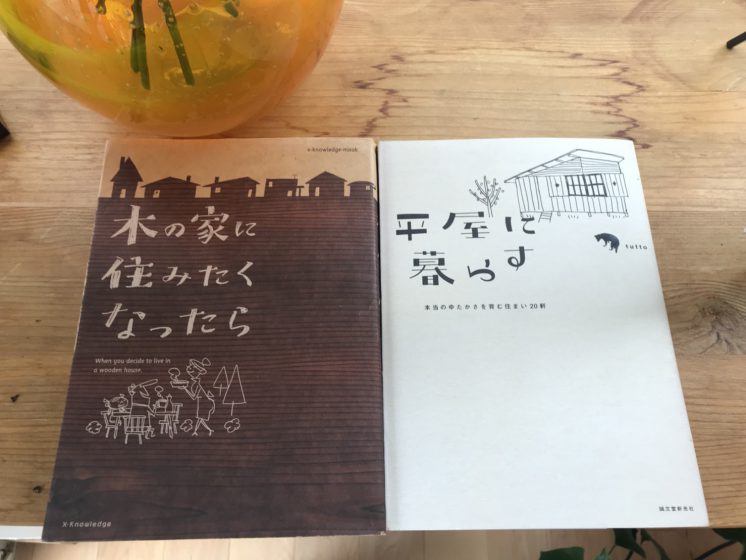 x-knowledge-mook
木の家に
住みたく
なったら
When you decide to live in
a wooden house.
X-Knowledge
平屋に
暮らす
tutto
本当のゆたかさを育む住まい20軒
誠文堂新光社